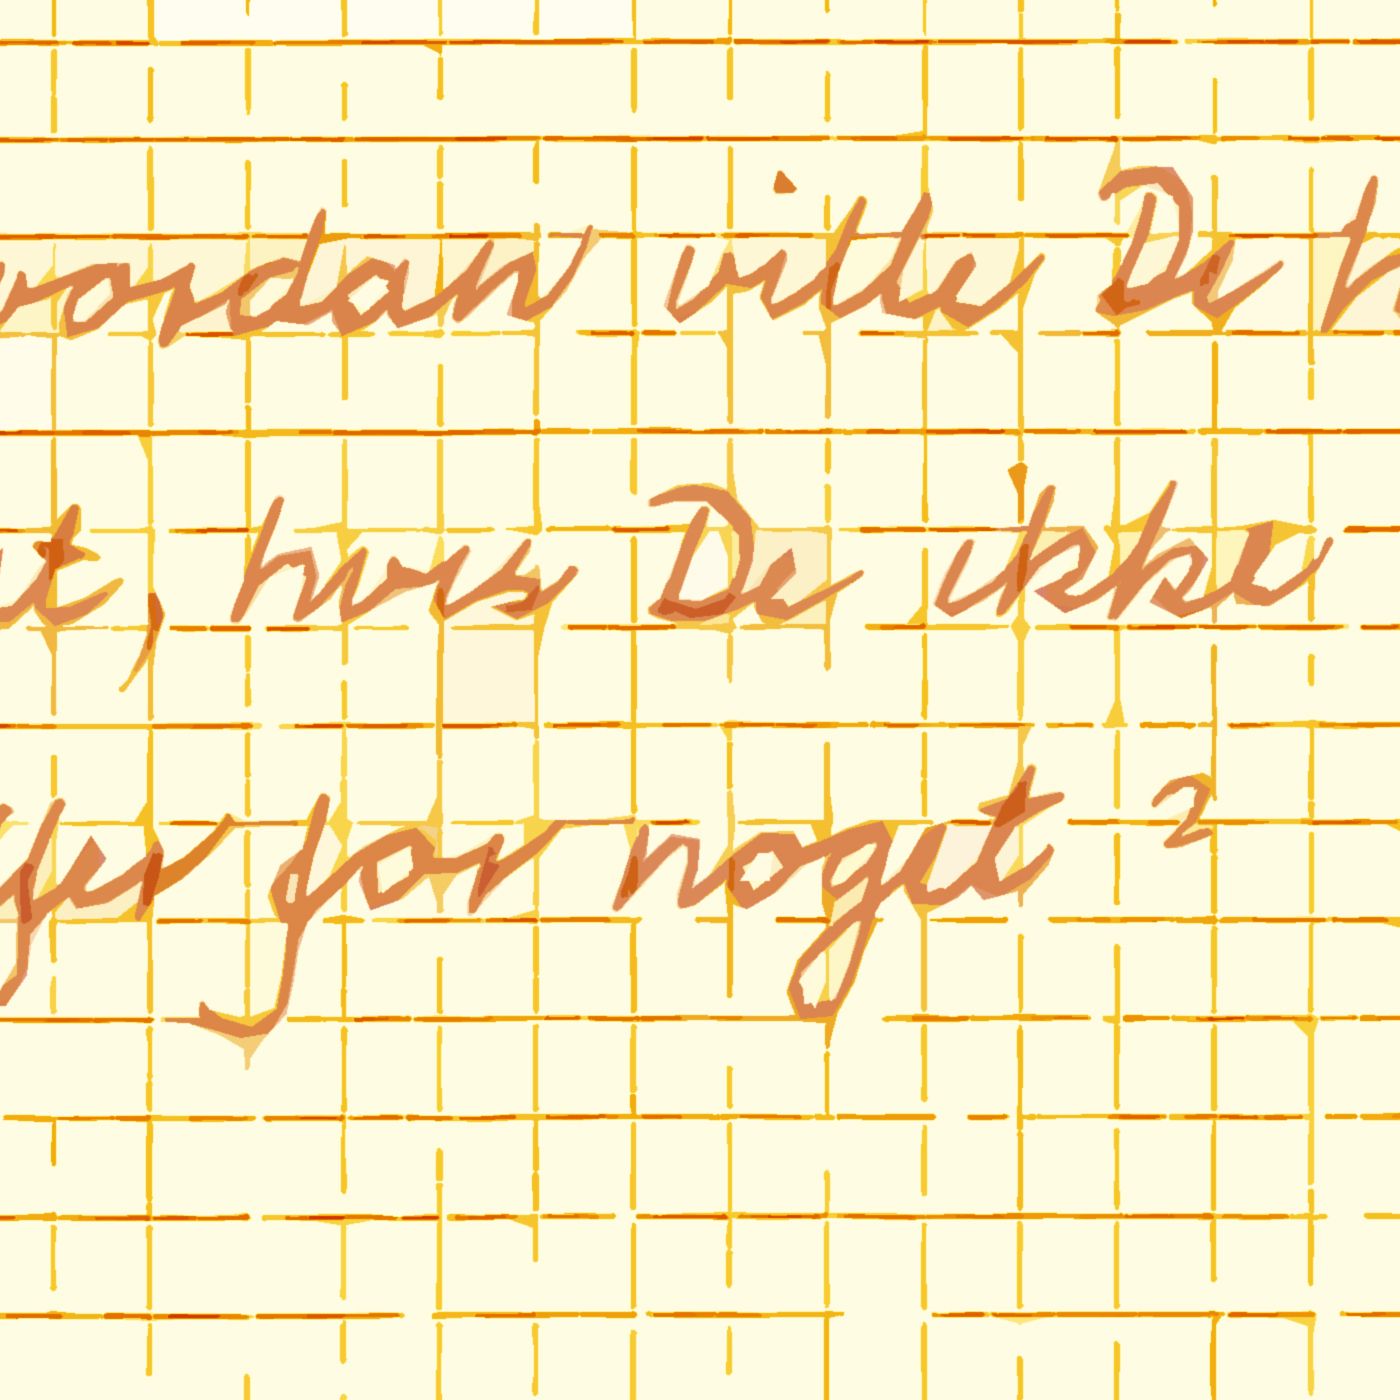 vordan ville De h
t, hvis De ikke
fer for noget 2